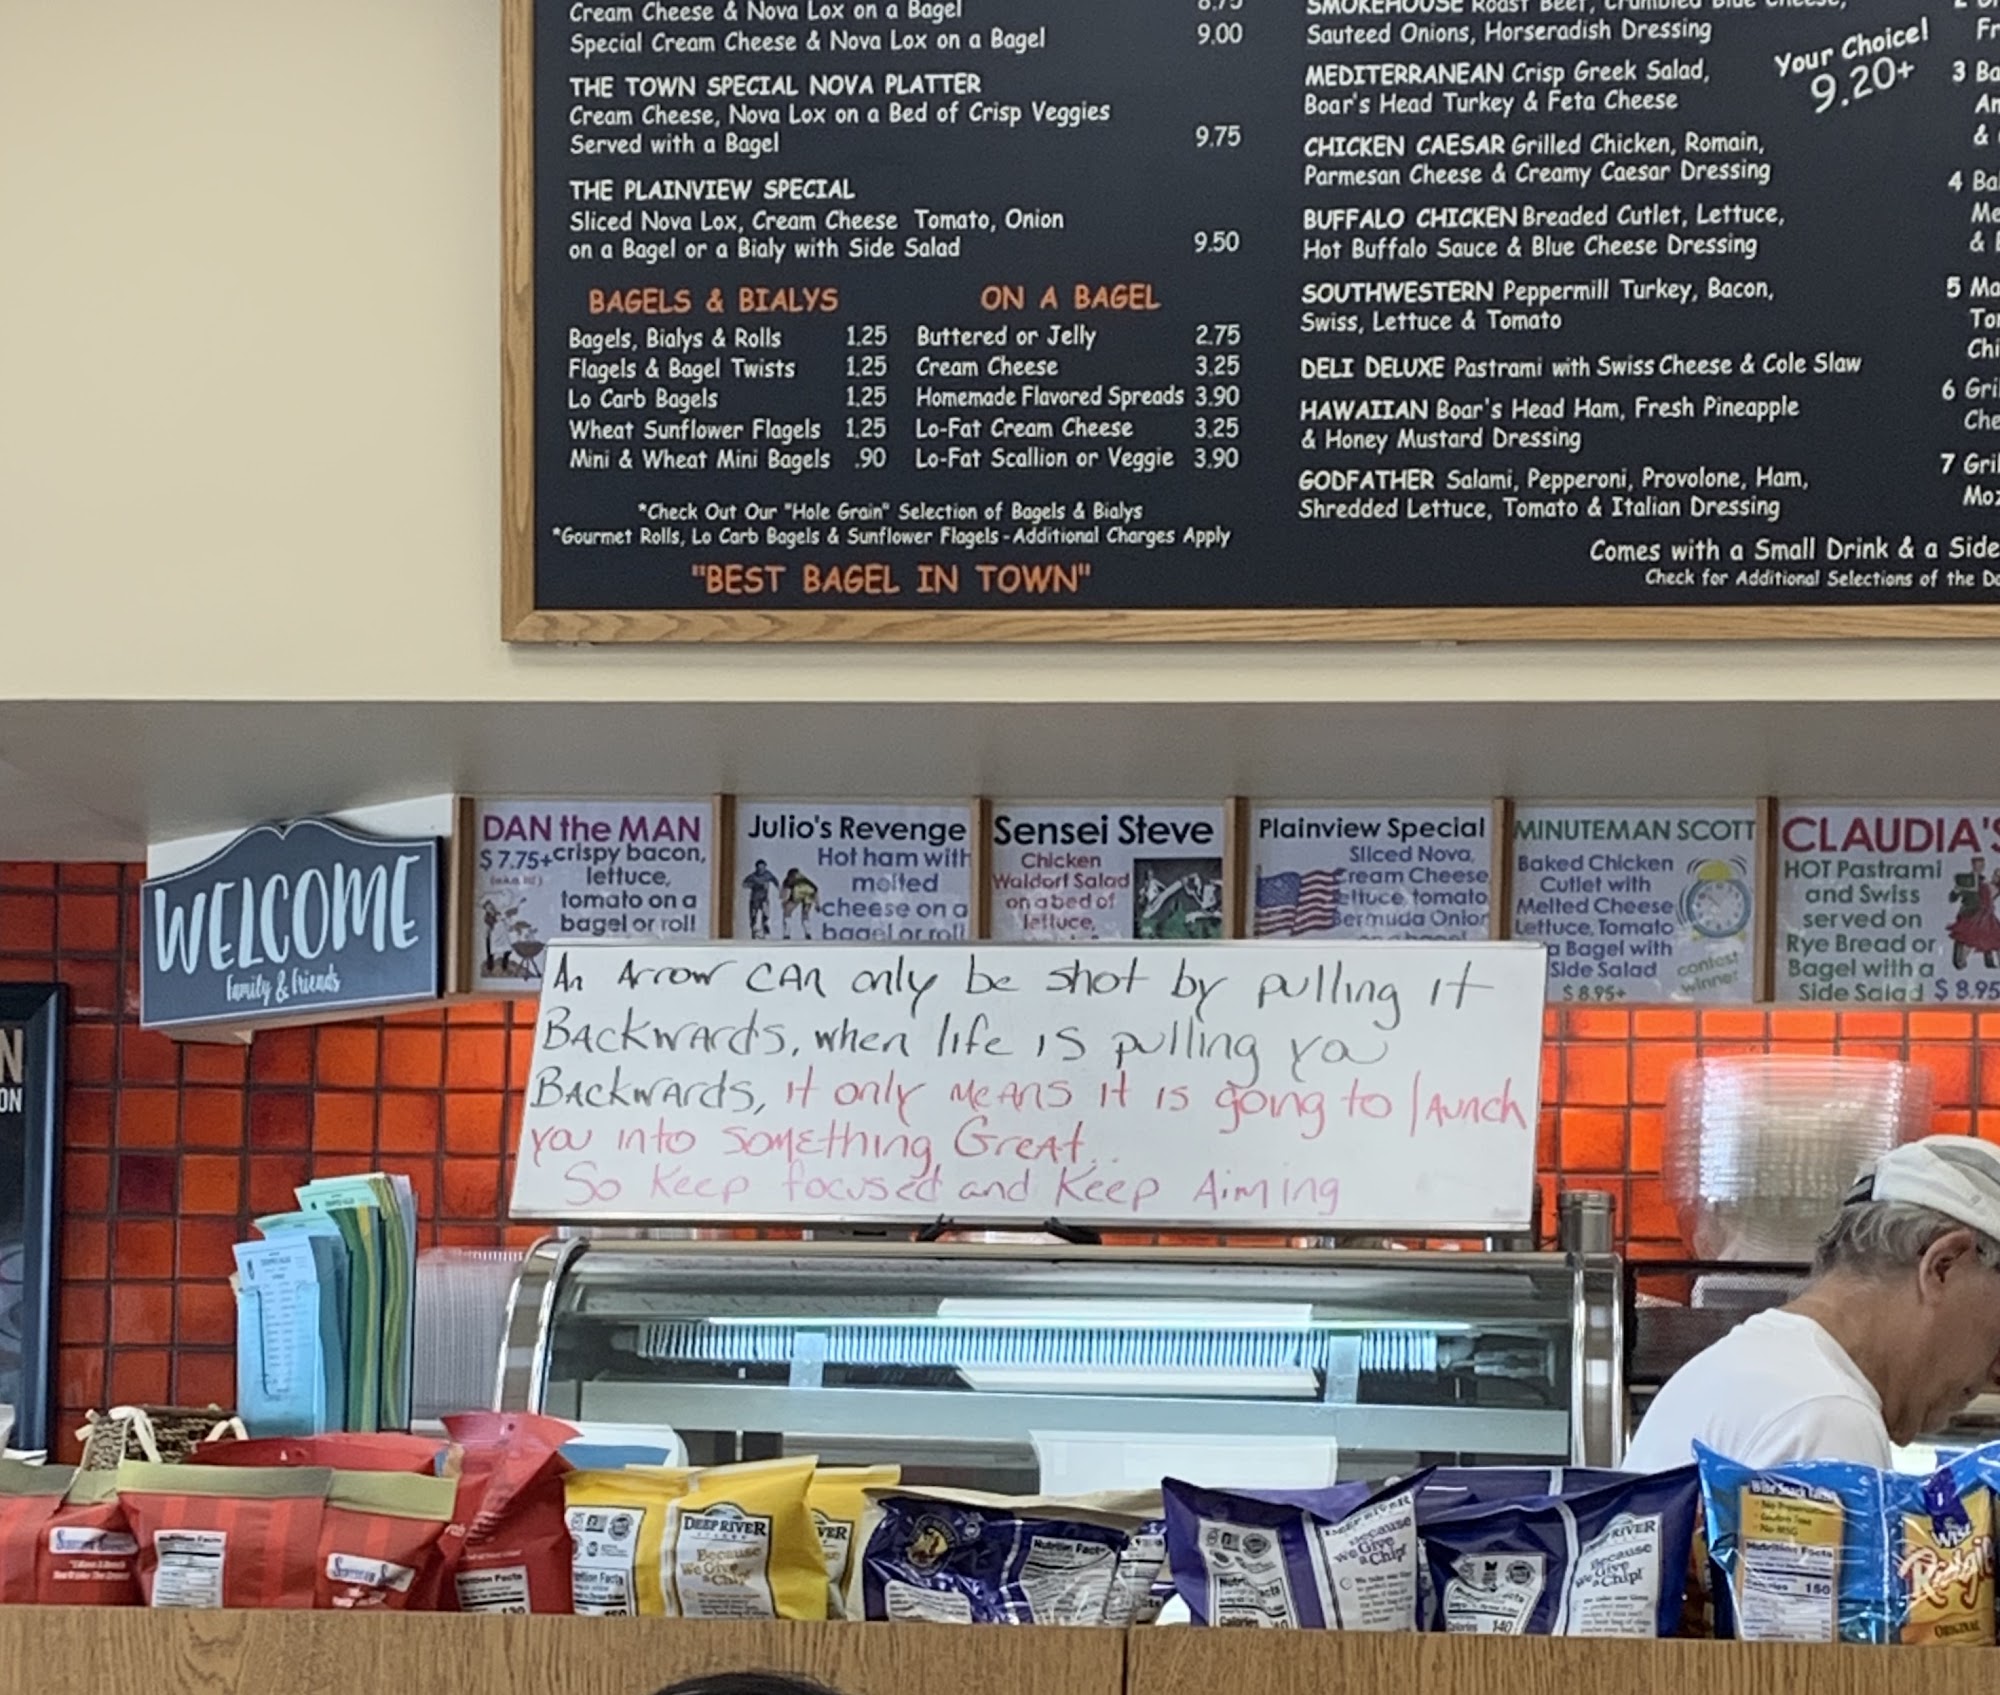 Cream Cheese & Nova Lox on a Bagel 8.75
Special Cream Cheese & Nova Lox on a Bagel 9.00
THE TOWN SPECIAL NOVA PLATTER
Cream Cheese, Nova Lox on a Bed of Crisp Veggies
Served with a Bagel 9.75
THE PLAINVIEW SPECIAL
Sliced Nova Lox, Cream Cheese Tomato, Onion
on a Bagel or a Bialy with Side Salad 9.50
BAGELS & BIALYS
Bagels, Bialys & Rolls 1.25
Flagels & Bagel Twists 1.25
Lo Carb Bagels 1.25
Wheat Sunflower Flagels 1.25
Mini & Wheat Mini Bagels .90
ON A BAGEL
Buttered or Jelly 2.75
Cream Cheese 3.25
Homemade Flavored Spreads 3.90
Lo-Fat Cream Cheese 3.25
Lo-Fat Scallion or Veggie 3.90
*Check Out Our "Hole Grain" Selection of Bagels & Bialys
*Gourmet Rolls, Lo Carb Bagels & Sunflower Flagels - Additional Charges Apply
"BEST BAGEL IN TOWN"
SMOKEHOUSE Roast Beef, Crumbled Blue Cheese,
Sauteed Onions, Horseradish Dressing
Your Choice!
9.20+
MEDITERRANEAN Crisp Greek Salad,
Boar's Head Turkey & Feta Cheese
CHICKEN CAESAR Grilled Chicken, Romain,
Parmesan Cheese & Creamy Caesar Dressing
BUFFALO CHICKEN Breaded Cutlet, Lettuce,
Hot Buffalo Sauce & Blue Cheese Dressing
SOUTHWESTERN Peppermill Turkey, Bacon,
Swiss, Lettuce & Tomato
DELI DELUXE Pastrami with Swiss Cheese & Cole Slaw
HAWAIIAN Boar's Head Ham, Fresh Pineapple
& Honey Mustard Dressing
GODFATHER Salami, Pepperoni, Provolone, Ham,
Shredded Lettuce, Tomato & Italian Dressing
Comes with a Small Drink & a Side
Check for Additional Selections of the
Fr
3 Ba
An
&
4 Ba
Me
&
5 Ma
To
Chi
6 Gril
Che
7 Gril
Moz
WELCOME
family & friends
DAN the MAN
$7.75+ crispy bacon,
lettuce,
tomato on a
bagel or roll
Julio's Revenge
Hot ham with
melted
cheese on a
bagel or roll
Sensei Steve
Chicken
Waldorf Salad
on a bed of
lettuce,
Plainview Special
Sliced Nova,
Cream Cheese,
lettuce, tomato
Bermuda Onion
MINUTEMAN SCOTT
Baked Chicken
Cutlet with
Melted Cheese
Lettuce, Tomato
a Bagel with
Side Salad
$8.95+
contest
winner
CLAUDIA'S
HOT Pastrami
and Swiss
served on
Rye Bread or
Bagel with a
Side Salad $8.95
An Arrow CAn only be shot by pulling it
Backwards, when life is pulling you
Backwards, it only Means it is going to launch
you into something Great..
So Keep focused and Keep Aiming
N
ON
Nutrition Facts
Nutrition Facts
130
DEEP RIVER
Because
We Give
a Chip!
Nutrition Facts
VER
Nutrition Facts
DEEP RIVER
Because
We Give
a Chip!
Calories
RIVER
Because
We Give
a Chip!
Calories 140
Wise Snack
Nutrition Facts
Calories 150
WISE
Ridgi
ORIGINAL